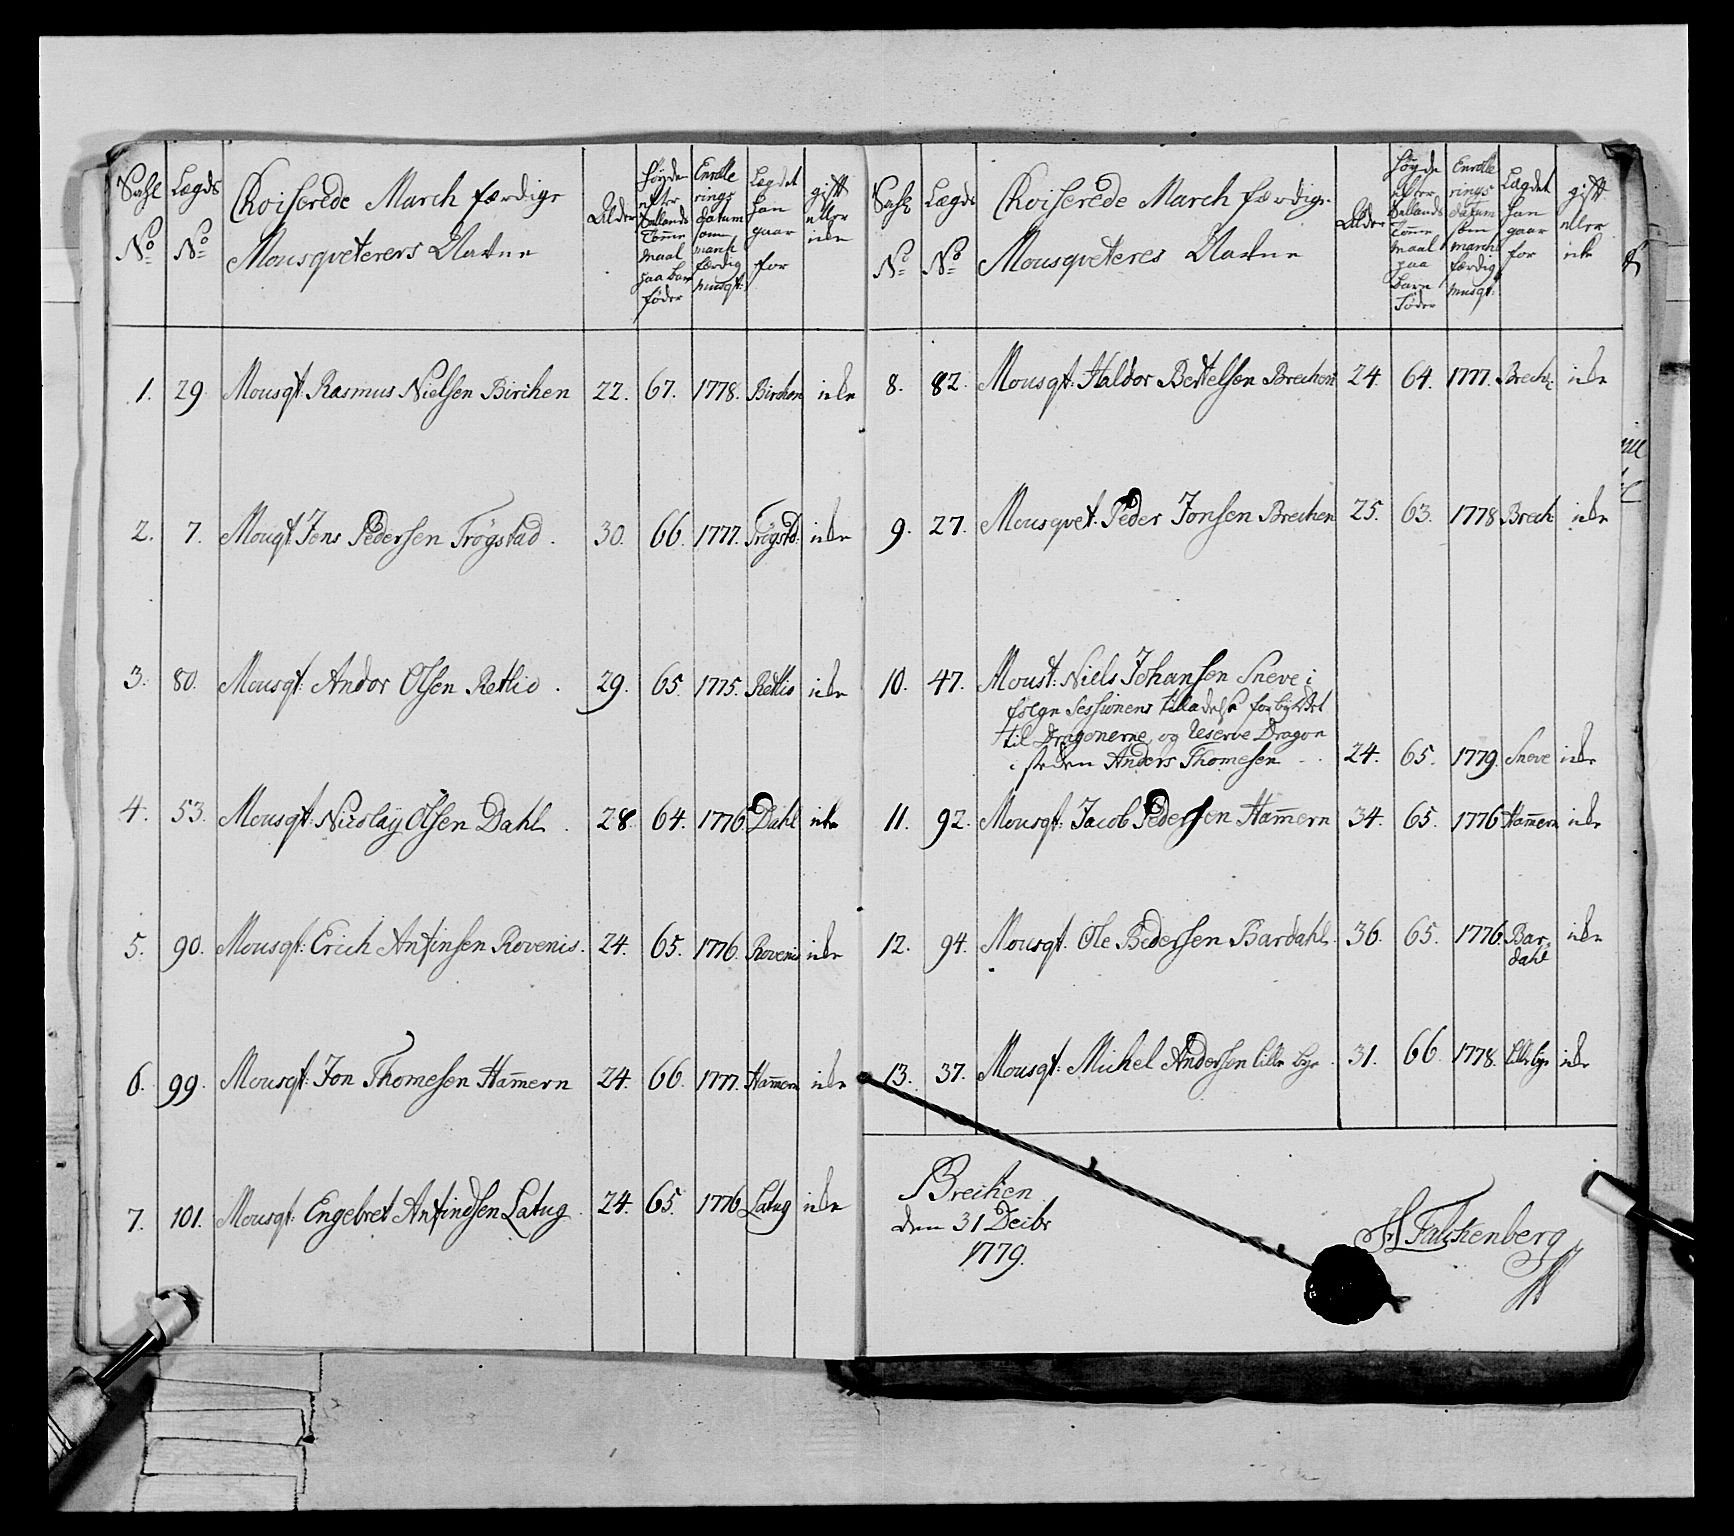 Sahl No
Lægds No
Choiserede March færdige
Mousqveterers Nafne
Alder
Høyde efter Sællands Tomme Maal paa bare føder
Enrollerings datum som march færdig musqt:
Lægdet han gaar for
gift eller icke
1. 29. Mousqt: Rasmus Nielsen Birchen 22. 67. 1778. Birchen icke
2. 7. Mouqt Jens Pedersen Trøgstad. 30. 66. 1777. Trøgstd: icke
3. 80. Mousqt: Andor Olsen Retlio. 29. 65. 1775. Retlio icke
4. 53. Mousqt: Nicolay Olsen Dahl. 28. 64. 1776 Dahl icke
5. 90. Mousqt: Erich Anfinsen Rovenis. 24. 65. 1776. Rovenis icke
6. 99. Mousqt: Jon Thomesen Ham̄ern 24. 66. 1777. Ham̄ern icke
7. 101. Mousqt: Engebret Anfindsen Latug. 24. 65. 1776 Latug icke
Sahl No
Lægds No
Choiserede March færdige
Mousqveteres Nafne
Alder
Høyde efter Sællands Tomme Maal paa bare føder
Enrollerings datum som march færdig musqt:
Lægdet han gaar for
gift eller icke
8. 82. Mousqt: Haldor Bertelsen Brechen 24. 64. 1777. Brech: icke
9. 27. Mousqvet. Peder Jonsen Brechen 25. 63. 1778 Brech icke
10. 47. Moust: Niels Johansen Sneve i
følge Sessionens tilladelse forbyttet
til Dragonerne, og Reserve Dragon
i steden Anders Thomesen 24. 65. 1779. Sneve icke
11. 92. Mousqt: Jacob Pedersen Ham̄ern 34. 65. 1776 Ham̄ern icke
12. 94. Mousqt. Ole Pedersen Bardahl. 36. 65. 1776. Bardahl icke
13. 37. Mousqt: Michel Andersen Lille bye. 31. 66. 1778. Lille bye icke
Breichen
den 31 Decibr
1779.
H Falckenberg